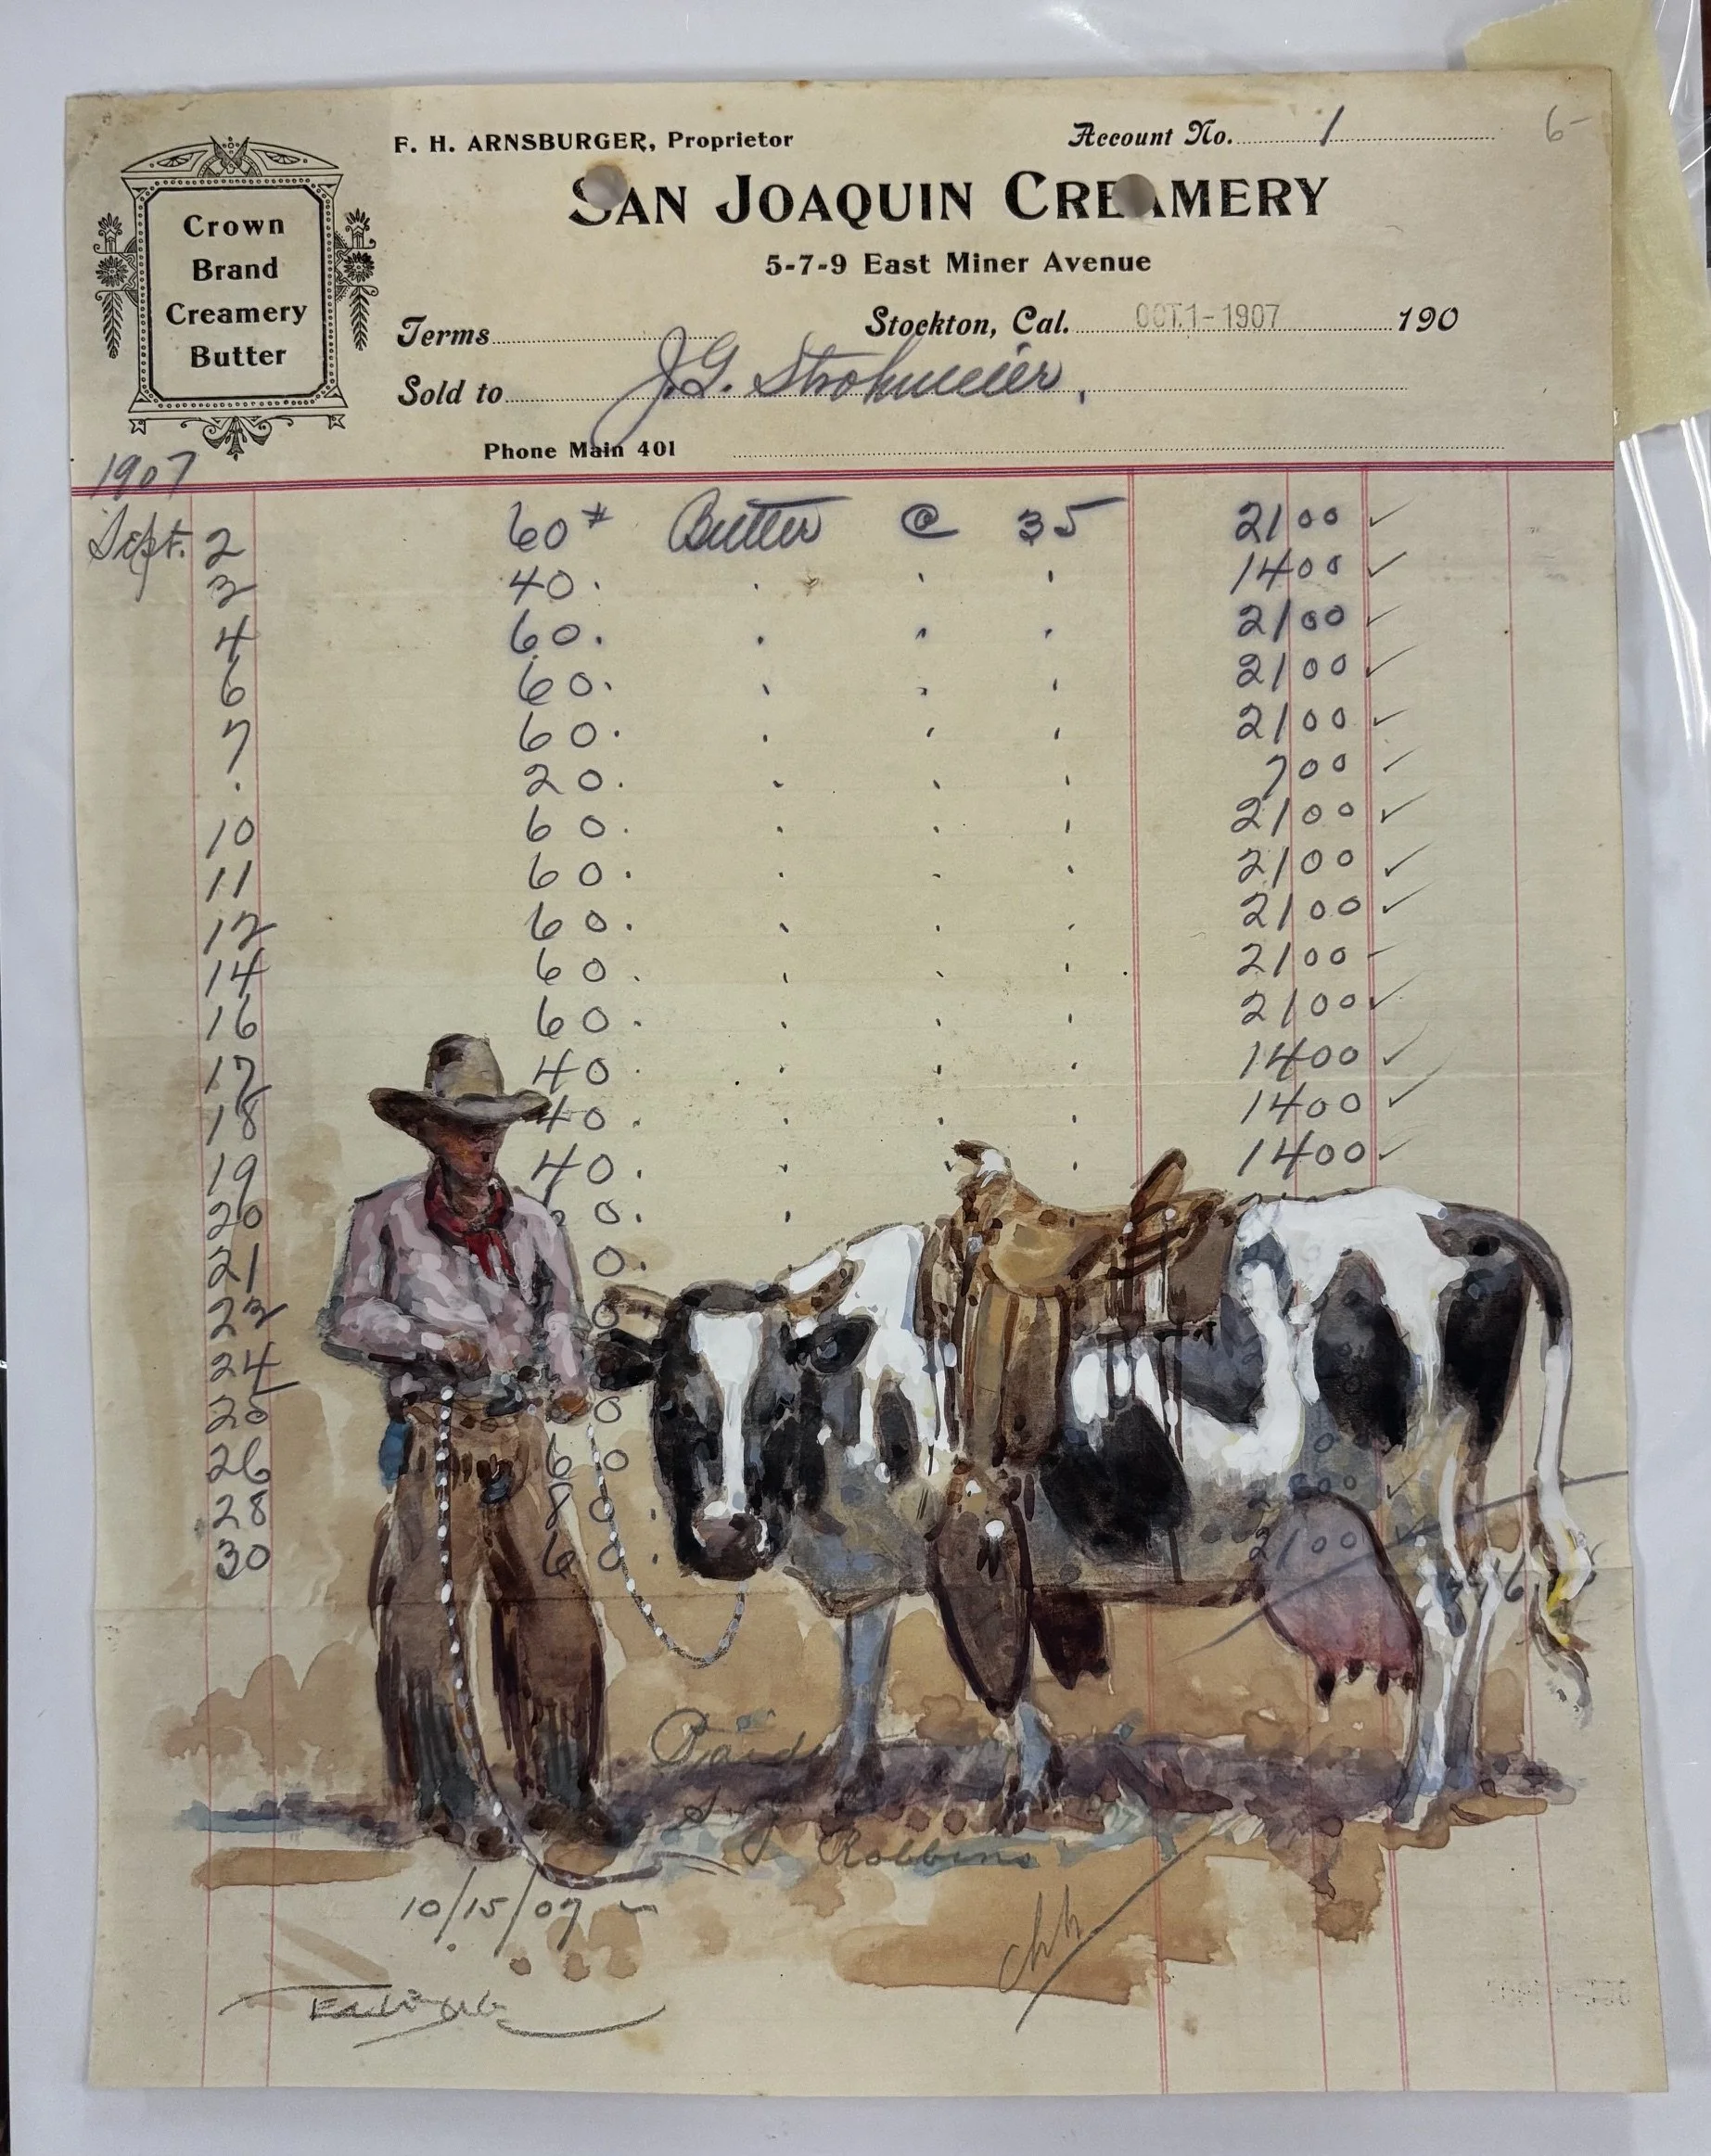 F. H. ARNSBURGER, Proprietor
Account No. 1
6-
SAN JOAQUIN CREAMERY
5-7-9 East Miner Avenue
Crown
Brand
Creamery
Butter
Terms
Stockton, Cal. OCT. 1 - 1907 190
Sold to J.G. Strohmeier,
Phone Main 401
1907
Sept. 2 60# Butter @ 35 21 00 ✓
3 40 . . ' ' 14 00 ✓
4 60 . . ' ' 21 00 ✓
6 60 . ' . ' 21 00 ✓
7 60 . . ' ' 21 00 ✓
. 20 . . ' ' 7 00 ✓
10 60 . . ' ' 21 00 ✓
11 60 . . . ' 21 00 ✓
12 60 . . . . 21 00 ✓
14 60 . ' . ' 21 00 ✓
16 60 . ' ' ' 21 00 ✓
17 40 . ' . ' 14 00 ✓
18 40 . ' ' ' 14 00 ✓
19 40 . ' . ' 14 00 ✓
20 0 . '
21 0 .
23 0
24
25 0
26 60
28 80 .
30 60 . 21 00 ✓
Paid
Robbins
10/15/07